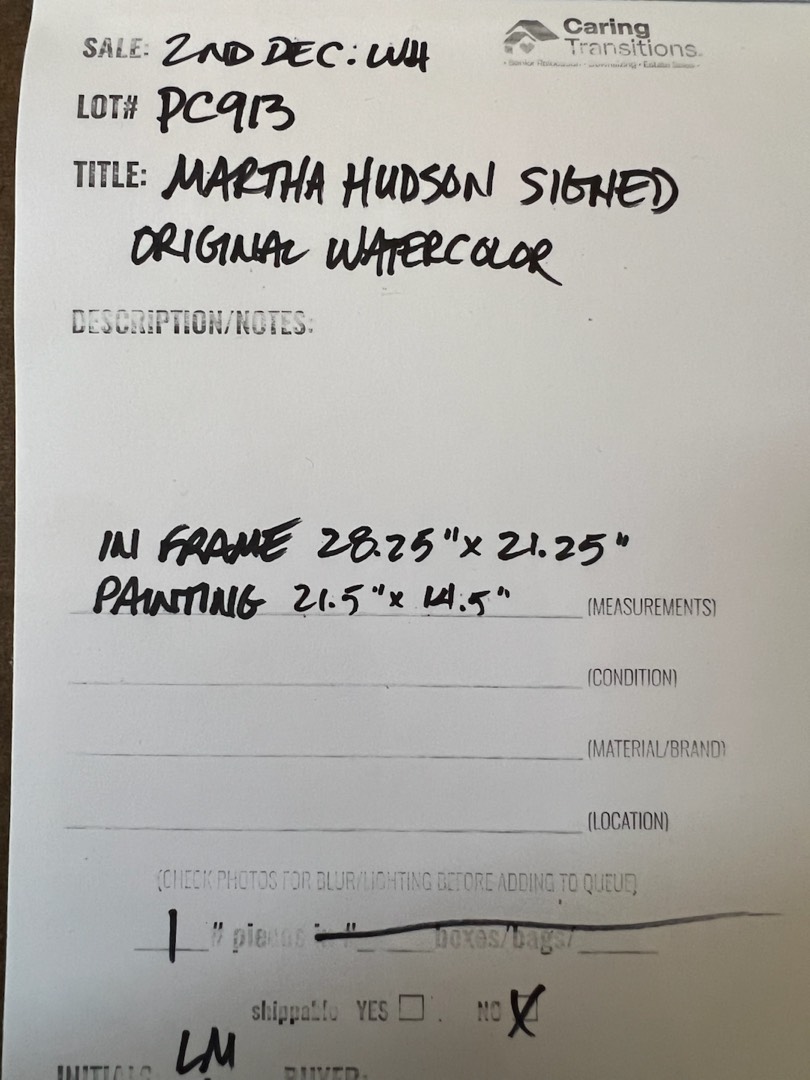 Caring
Transitions
SALE: 2ND DEC: WH
LOT# PC913
TITLE: MARTHA HUDSON SIGNED
ORIGINAL WATERCOLOR
DESCRIPTION/NOTES:
IN FRAME 28.25"x 21.25"
PAINTING 21.5"x 14.5" (MEASUREMENTS)
(CONDITION)
(MATERIAL/BRAND)
(LOCATION)
(CHECK PHOTOS FOR BLUR/LIGHTING BEFORE ADDING TO QUEUE)
1 # pieces in # boxes/bags/
shippable YES NO X
INITIALS LM BUYER: